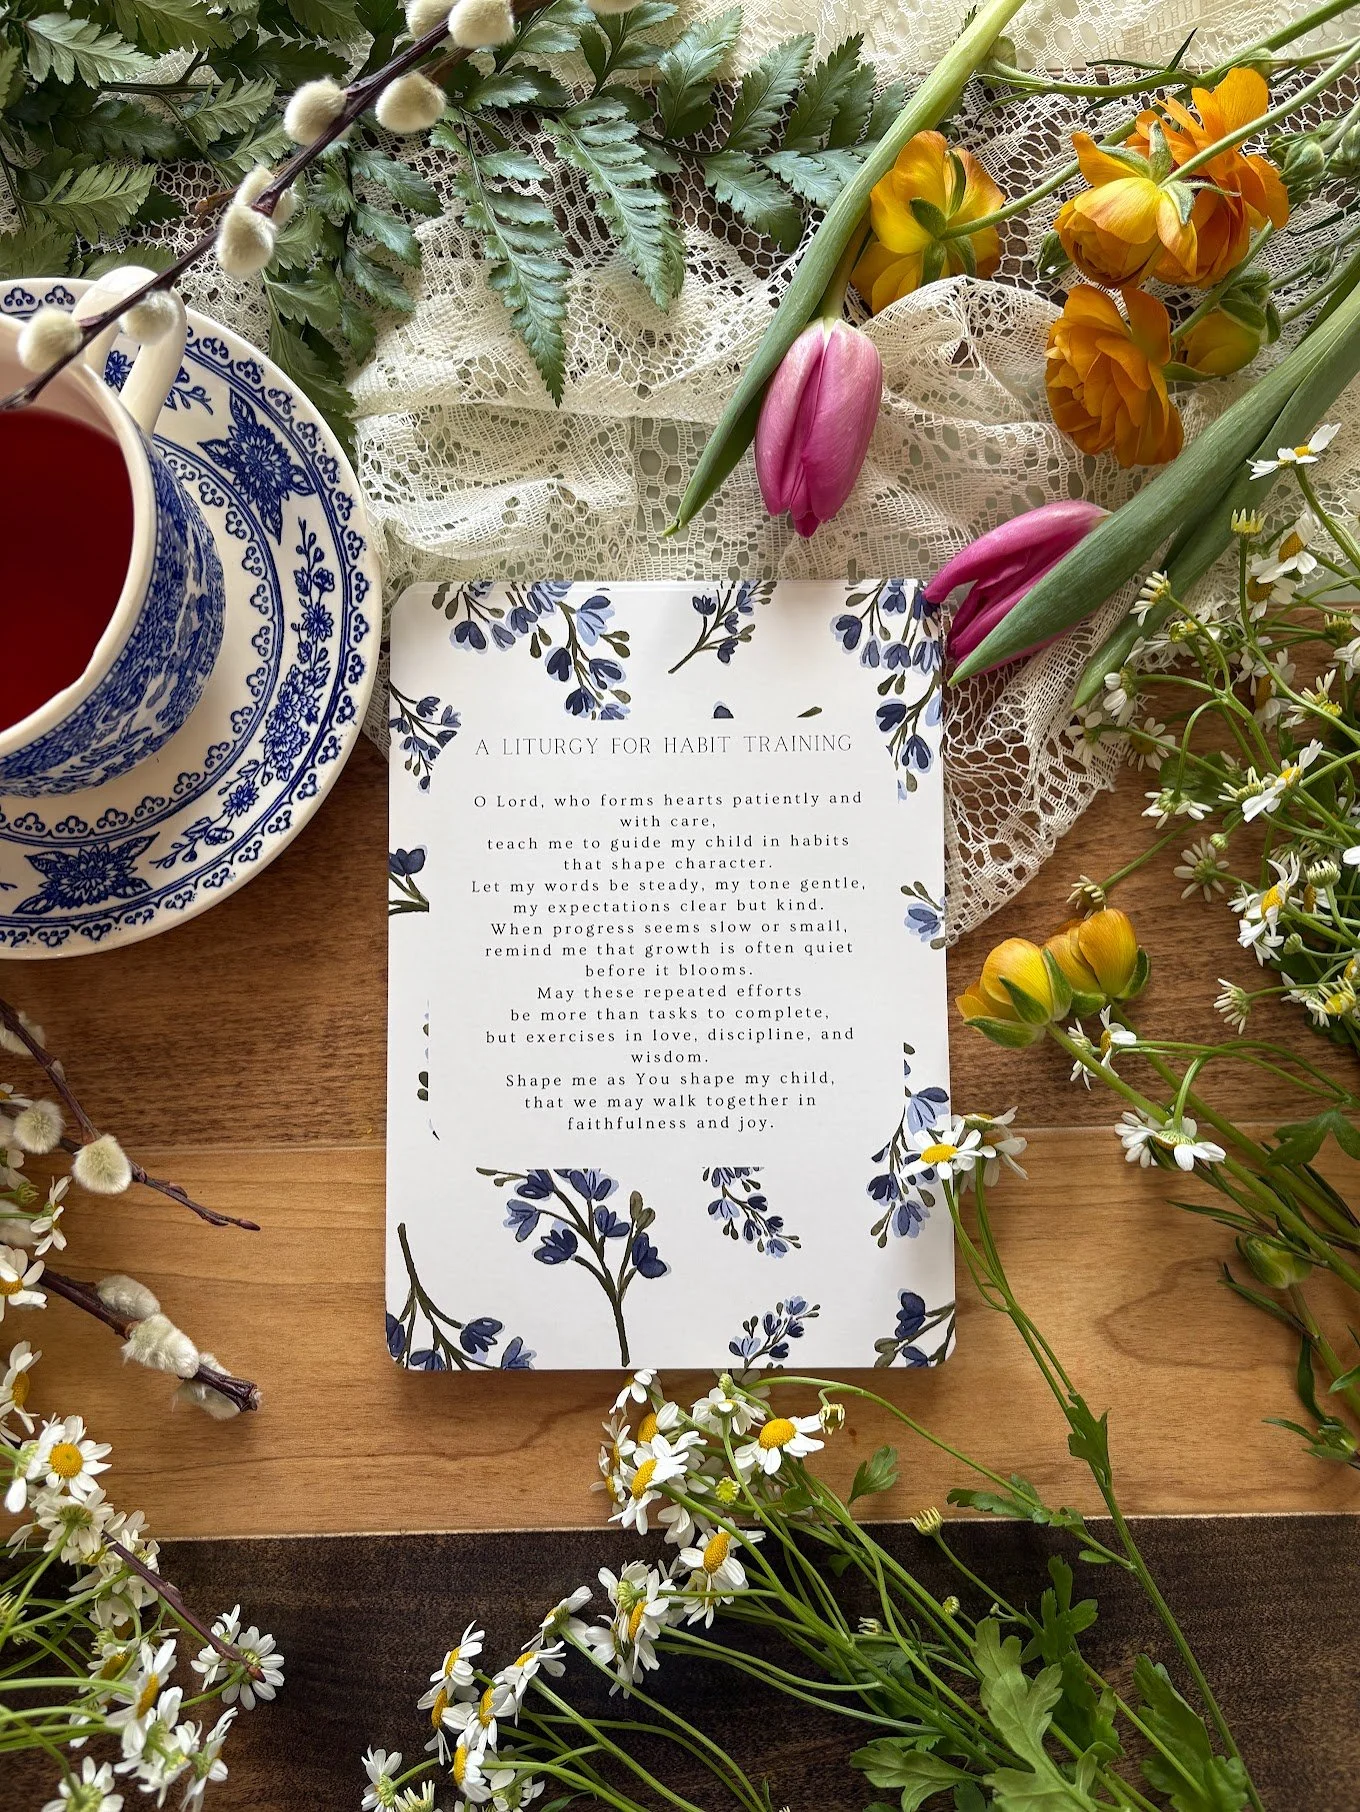 A LITURGY FOR HABIT TRAINING
O Lord, who forms hearts patiently and
with care,
teach me to guide my child in habits
that shape character.
Let my words be steady, my tone gentle,
my expectations clear but kind.
When progress seems slow or small,
remind me that growth is often quiet
before it blooms.
May these repeated efforts
be more than tasks to complete,
but exercises in love, discipline, and
wisdom.
Shape me as You shape my child,
that we may walk together in
faithfulness and joy.